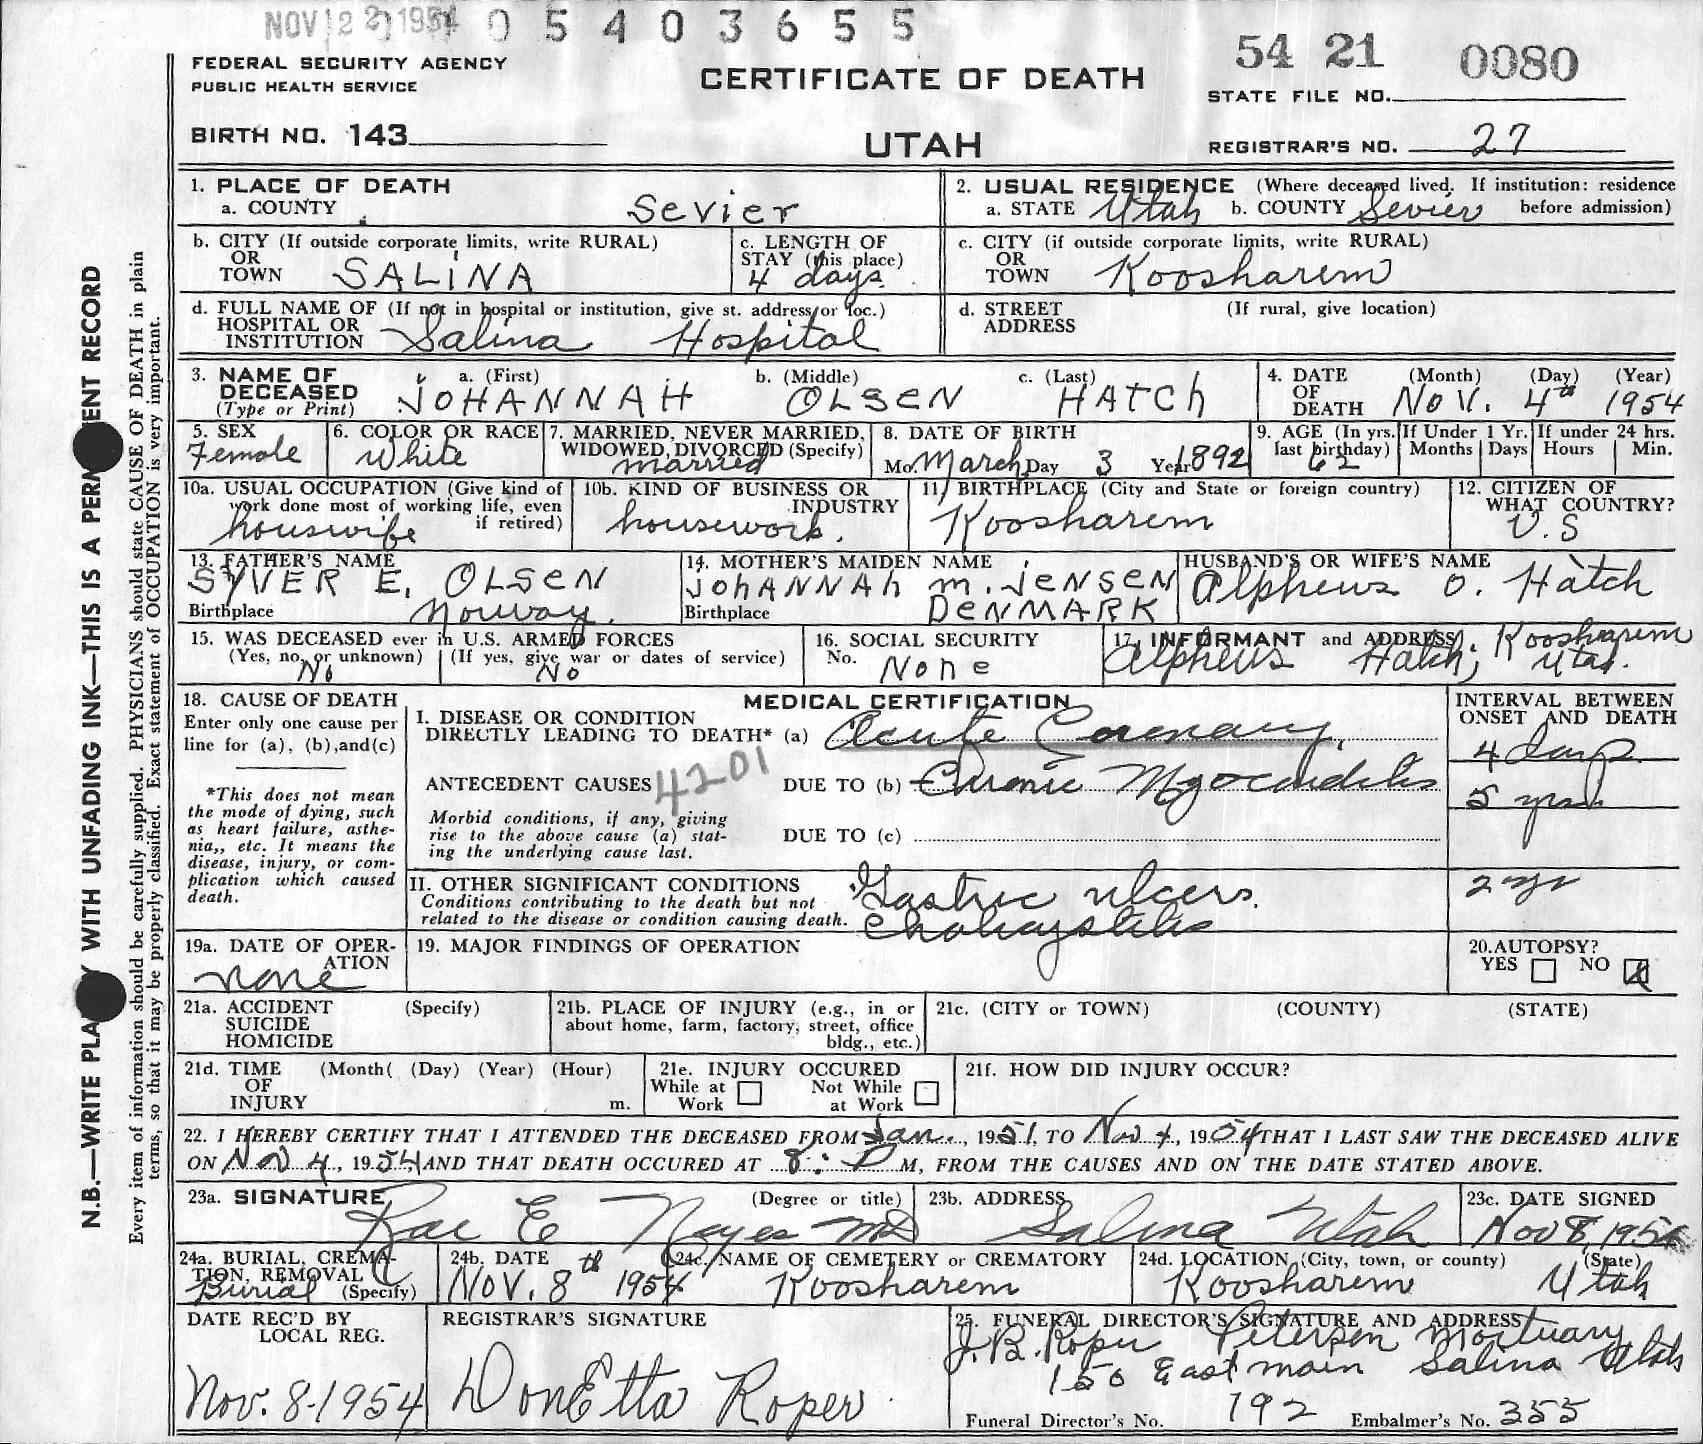 NOV 22 1954 0 5 4 0 3 6 5 5
54 21 0080
FEDERAL SECURITY AGENCY
PUBLIC HEALTH SERVICE
CERTIFICATE OF DEATH
STATE FILE NO.
BIRTH NO. 143
UTAH
REGISTRAR'S NO. 27
1. PLACE OF DEATH
a. COUNTY Sevier
2. USUAL RESIDENCE (Where deceased lived. If institution: residence before admission)
a. STATE Utah b. COUNTY Sevier
b. CITY (If outside corporate limits, write RURAL)
OR
TOWN SALINA
c. LENGTH OF
STAY (this place)
4 days
c. CITY (if outside corporate limits, write RURAL)
OR
TOWN Koosharem
d. FULL NAME OF (If not in hospital or institution, give st. address or loc.)
HOSPITAL OR
INSTITUTION Salina Hospital
d. STREET (If rural, give location)
ADDRESS
3. NAME OF a. (First) b. (Middle) c. (Last)
DECEASED
(Type or Print) JOHANNAH OLSEN HATCH
4. DATE (Month) (Day) (Year)
OF
DEATH Nov. 4th 1954
5. SEX
Female
6. COLOR OR RACE
White
7. MARRIED, NEVER MARRIED,
WIDOWED, DIVORCED (Specify)
married
8. DATE OF BIRTH
Mo. March Day 3 Year 1892
9. AGE (In yrs. last birthday)
62
If Under 1 Yr.
Months Days
If under 24 hrs.
Hours Min.
10a. USUAL OCCUPATION (Give kind of
work done most of working life, even
if retired)
houswife
10b. KIND OF BUSINESS OR
INDUSTRY
housework.
11. BIRTHPLACE (City and State or foreign country)
Koosharem
12. CITIZEN OF
WHAT COUNTRY?
U.S
13. FATHER'S NAME
SYVER E. OLSEN
Birthplace Norway.
14. MOTHER'S MAIDEN NAME
JOHANNAH M. JENSEN
Birthplace DENMARK
HUSBAND'S OR WIFE'S NAME
Alpheus O. Hatch
15. WAS DECEASED ever in U.S. ARMED FORCES
(Yes, no, or unknown) (If yes, give war or dates of service)
No No
16. SOCIAL SECURITY
No. None
17. INFORMANT and ADDRESS
Alpheus Hatch, Koosharem
Utah.
18. CAUSE OF DEATH
Enter only one cause per
line for (a), (b), and (c)
*This does not mean
the mode of dying, such
as heart failure, asthe-
nia,, etc. It means the
disease, injury, or com-
plication which caused
death.
MEDICAL CERTIFICATION
I. DISEASE OR CONDITION
DIRECTLY LEADING TO DEATH* (a) Acute Coronary.
ANTECEDENT CAUSES 4201
DUE TO (b) Chronic Myocarditis
Morbid conditions, if any, giving
rise to the above cause (a) stat-
ing the underlying cause last.
DUE TO (c)
II. OTHER SIGNIFICANT CONDITIONS
Conditions contributing to the death but not
related to the disease or condition causing death.
Gastric ulcers.
Cholicystitis
INTERVAL BETWEEN
ONSET AND DEATH
4 days
5 yrs
2 yr
19a. DATE OF OPER-
ATION
none
19. MAJOR FINDINGS OF OPERATION
20. AUTOPSY?
YES NO X
21a. ACCIDENT (Specify)
SUICIDE
HOMICIDE
21b. PLACE OF INJURY (e.g., in or
about home, farm, factory, street, office
bldg., etc.)
21c. (CITY or TOWN) (COUNTY) (STATE)
21d. TIME (Month( (Day) (Year) (Hour)
OF
INJURY m.
21e. INJURY OCCURED
While at Work Not While at Work
21f. HOW DID INJURY OCCUR?
22. I HEREBY CERTIFY THAT I ATTENDED THE DECEASED FROM Jan., 1951, TO Nov 4, 1954 THAT I LAST SAW THE DECEASED ALIVE
ON Nov 4, 1954 AND THAT DEATH OCCURED AT 8: P M, FROM THE CAUSES AND ON THE DATE STATED ABOVE.
23a. SIGNATURE (Degree or title)
Rae E Noyes MD
23b. ADDRESS
Salina Utah
23c. DATE SIGNED
Nov 8, 1954
24a. BURIAL, CREMA-
TION, REMOVAL
(Specify)
Burial
24b. DATE
NOV. 8th 1954
24c. NAME OF CEMETERY or CREMATORY
Koosharem
24d. LOCATION (City, town, or county) (State)
Koosharem Utah
DATE REC'D BY
LOCAL REG.
Nov. 8-1954
REGISTRAR'S SIGNATURE
DonEtta Roper
25. FUNERAL DIRECTOR'S SIGNATURE AND ADDRESS
J.B. Roper Petersen Mortuary
150 East main Salina Utah
Funeral Director's No. 792 Embalmer's No. 355
N.B.—WRITE PLA Y WITH UNFADING INK—THIS IS A PERM ENT RECORD
Every item of information should be carefully supplied. PHYSICIANS should state CAUSE OF DEATH in plain
terms, so that it may be properly classified. Exact statement of OCCUPATION is very important.